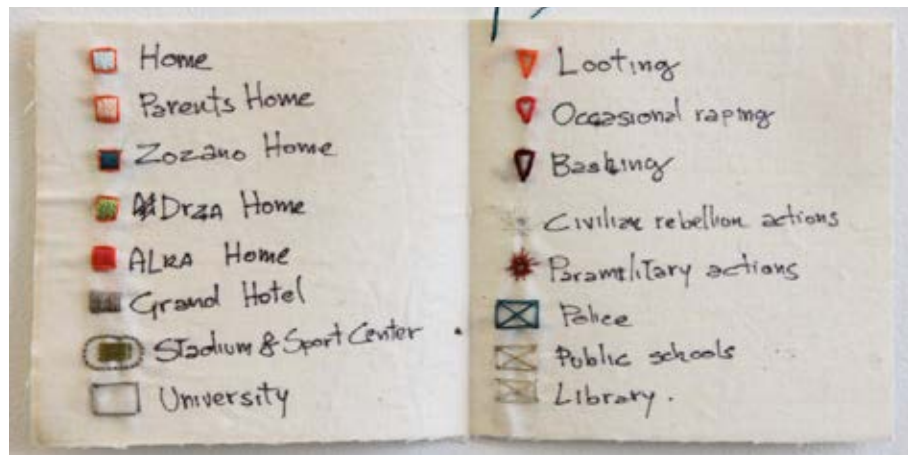 Home
Parents Home
Zozano Home
Drza Home
ALRA Home
Grand Hotel
Stadium & Sport Center
University
Looting
Occasional raping
Basking
Civilian rebellion actions
Paramilitary actions
Police
Public schools
Library.